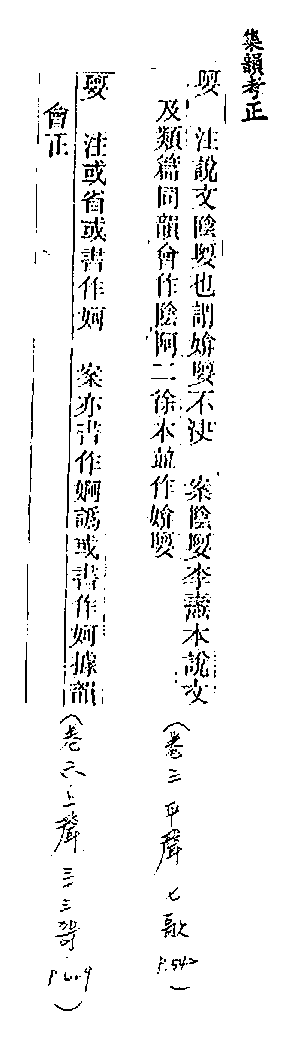 集韻考正
娿 注說文陰娿也謂媕娿不決 案陰娿李燾本說文
及類篇同韻會作陰阿二徐本竝作媕娿
(卷三平聲七歌 P.542)
娿 注或省或書作妸 案亦書作婀譌或書作妸據韻
會正
(卷六上聲三三哿 P.609)